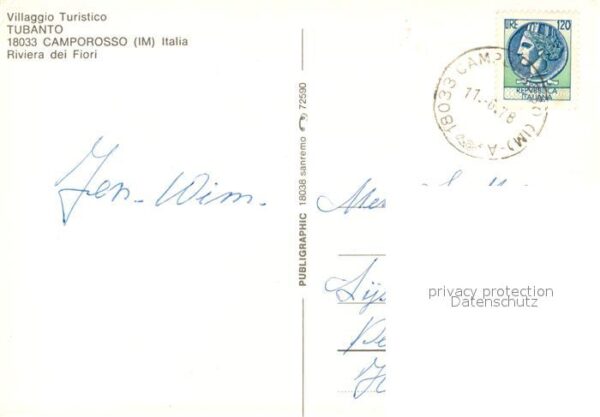 Villaggio Turistico
TUBANTO
18033 CAMPOROSSO (IM) Italia
Riviera dei Fiori
LIRE 120
REPUBBLICA
ITALIANA
18033 CAMPOROSSO (IM)-A
17.-6.78
Jen - Wim.
PUBLIGRAPHIC 18038 sanremo 72590
privacy protection
Datenschutz